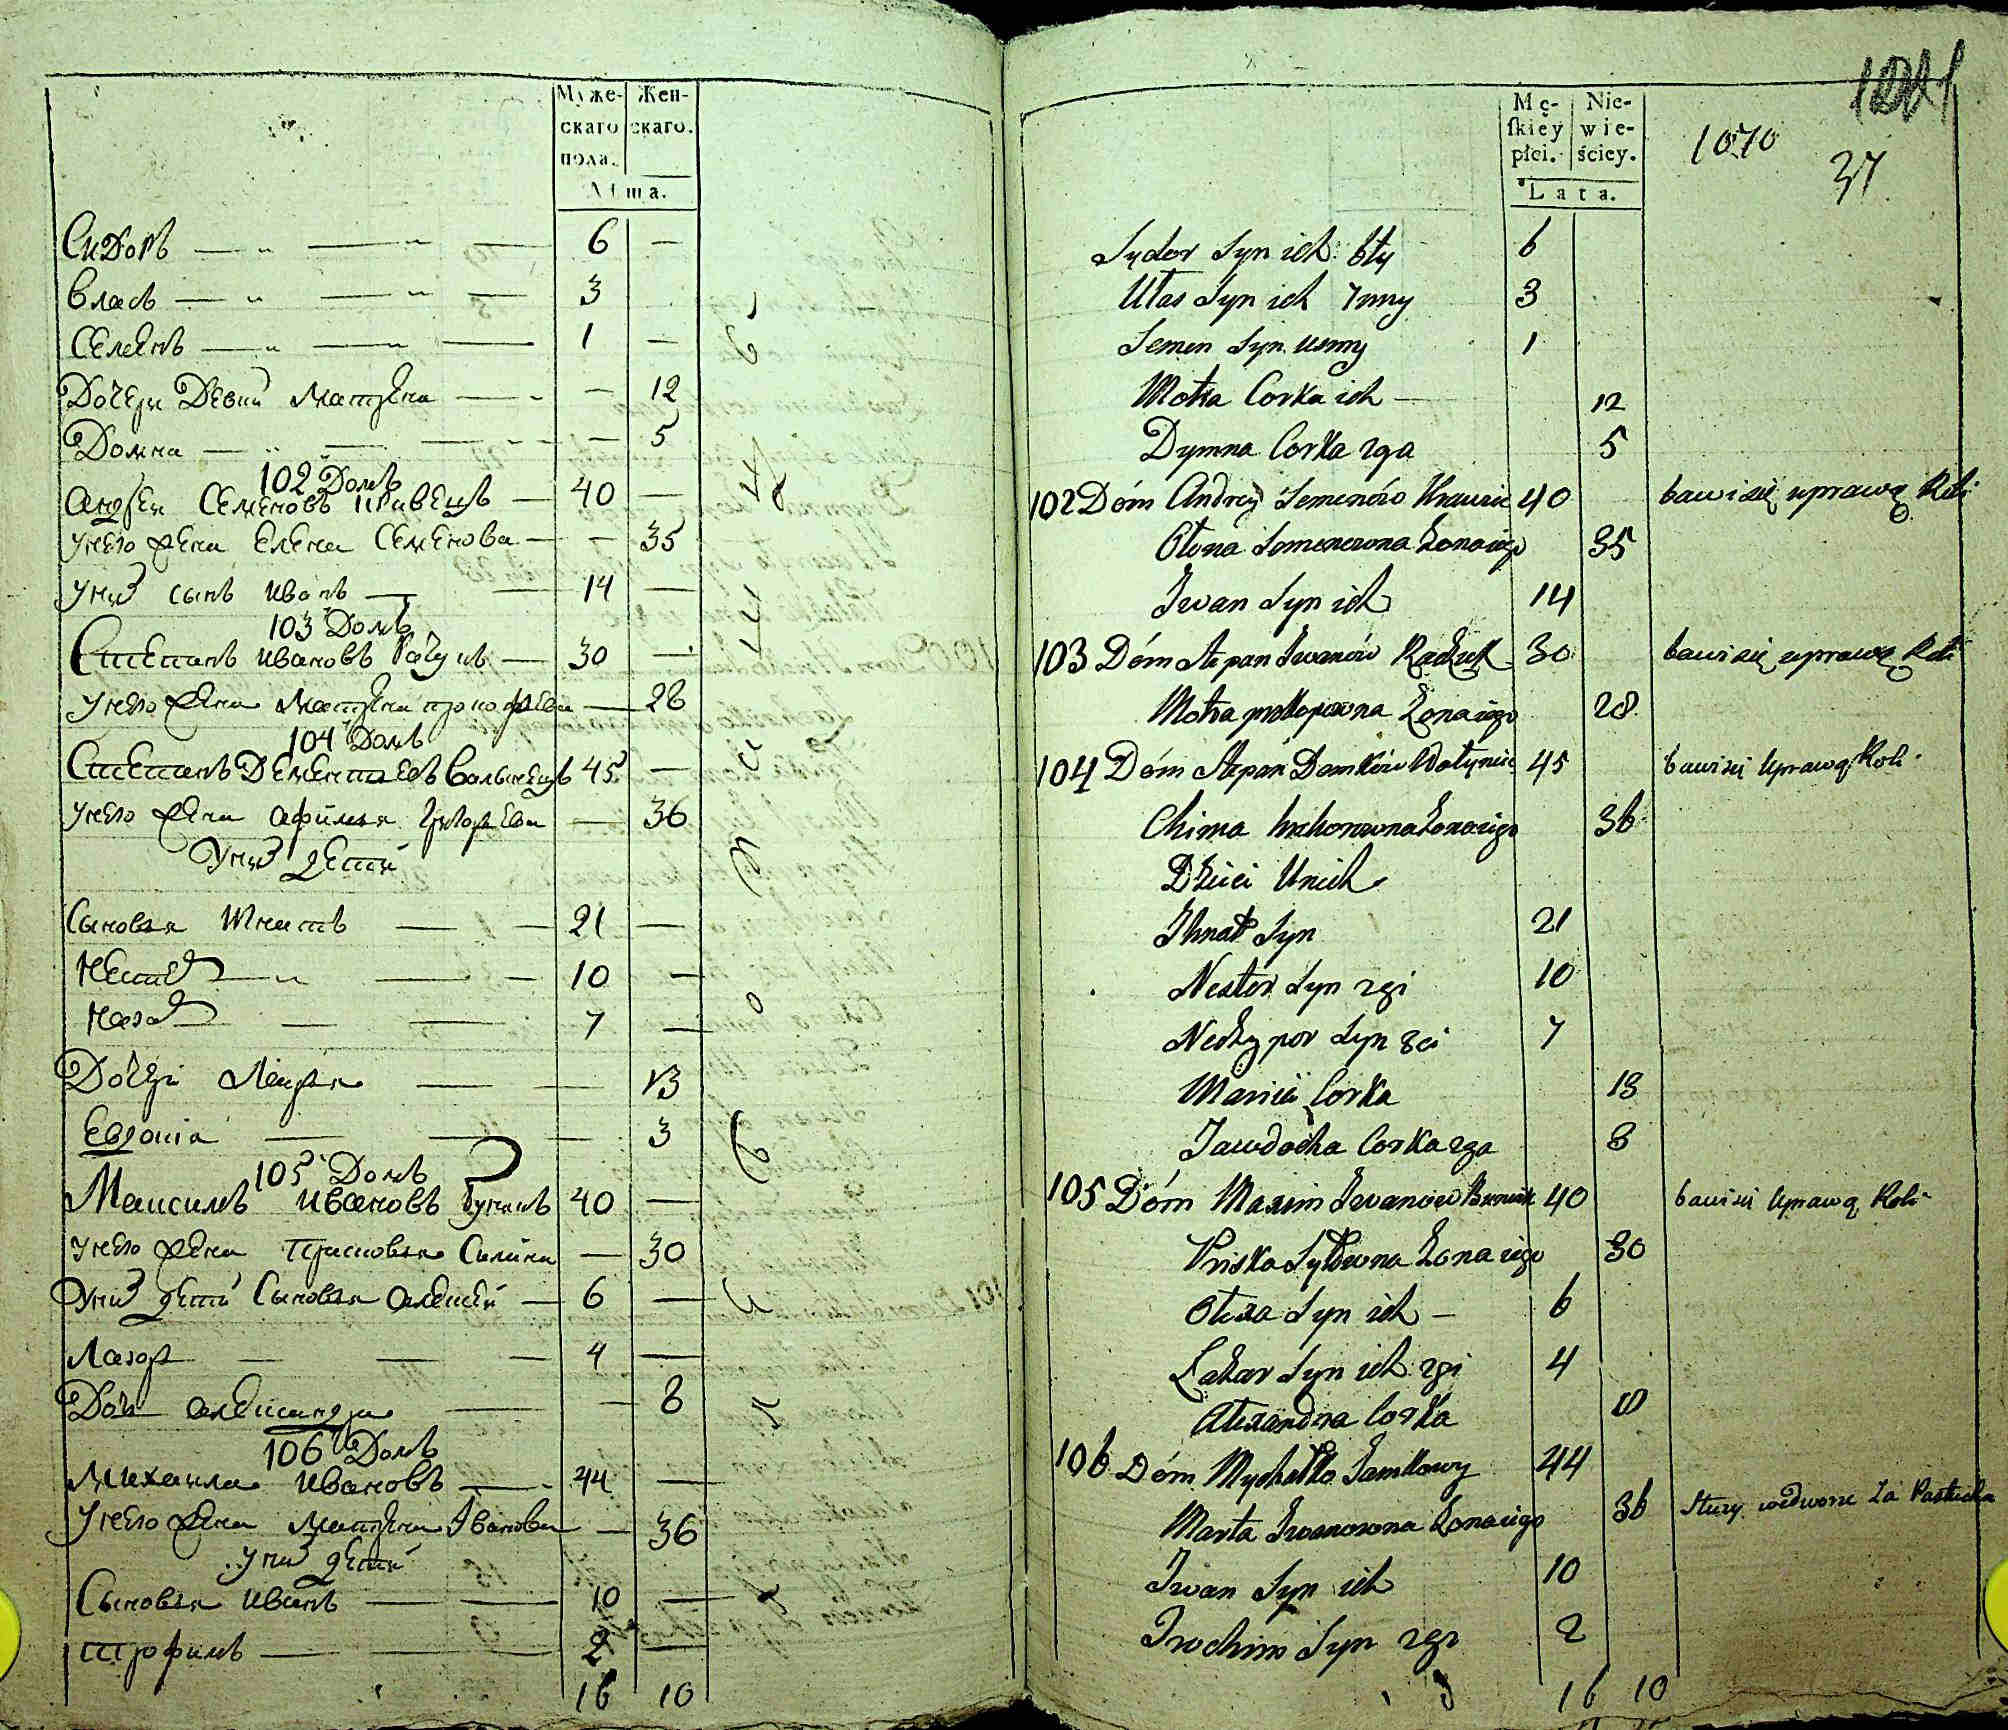 Муже- Жен-
скаго скаго.
пола.
Лѣта.
Сидоръ — „ — „ — 6 —
Власъ — „ — „ — 3
Семенъ — „ — „ — 1 —
Дочери Девки Матрена — - — 12
Домна — — — 5
102 Домъ
Андрей Семеновъ Кравецъ — 40 —
У него жена Елена Семенова — — 35
У них сынъ Иванъ — 14 —
103 Домъ
Степанъ Ивановъ — 30 —
У него жена Матрена Прокофиева — 28
104 Домъ
Степанъ Дементиевъ Волынецъ 45 —
У него жена Афимья Григориева — 36
У них дети
Сыновья Игнатъ — — 21 —
Нестер — „ — — 10 —
— — — 7 —
Дочери Марья — — 13
Евдокиа — — — 3
105 Домъ
Максимъ Ивановъ 40 —
У него жена Прасковья Силина — 30
У них дети Сыновья Алексей — 6 —
Лазор — — — 4 —
Дочь Александра — — 8
106 Домъ
Михаила Ивановъ — 44 —
У него жена Матрена Иванова — 36
У них дети
Сыновья Иванъ — — 10 —
Трофимъ — — — 2 —
16 10
1070
37
Mę- Nie-
skiey wie-
płci. ściey.
Lata.
Sydor Syn ich 6ty 6
Ułas Syn ich Inny 3
Semen Syn 1
Motra Corka ich — 12
Dymna Corka 2ga 5
102 Dóm Andrey Semenów Krawiec 40 bawi się uprawą Roli
Ołena Semenowna Zona iego 35
Iwan Syn ich 14
103 Dóm Stepan Iwanów 30 bawi się uprawą Roli
Motra Prokopowna Zona iego 28
104 Dóm Stepan Demków Wołyniec 45 bawi się Uprawą Roli
Chima Zona iego 36
Dzieci Unich
Ihnat Syn 21
Nestor Syn 2gi 10
Neczypor Syn 3ci 7
Marisia Corka 13
Jawdocha Corka 2ga 3
105 Dóm Maxim Iwanow 40 bawi się Uprawą Roli
Priska Zona iego 30
Olexa Syn ich — 6
Lazar Syn ich 2gi 4
Alexandra Corka 8
106 Dóm Mychałko 44
Marta Iwanowna Zona iego 36 Służy we dworze za Pastucha
Iwan Syn ich 10
Trochim Syn 2gi 2
16 10